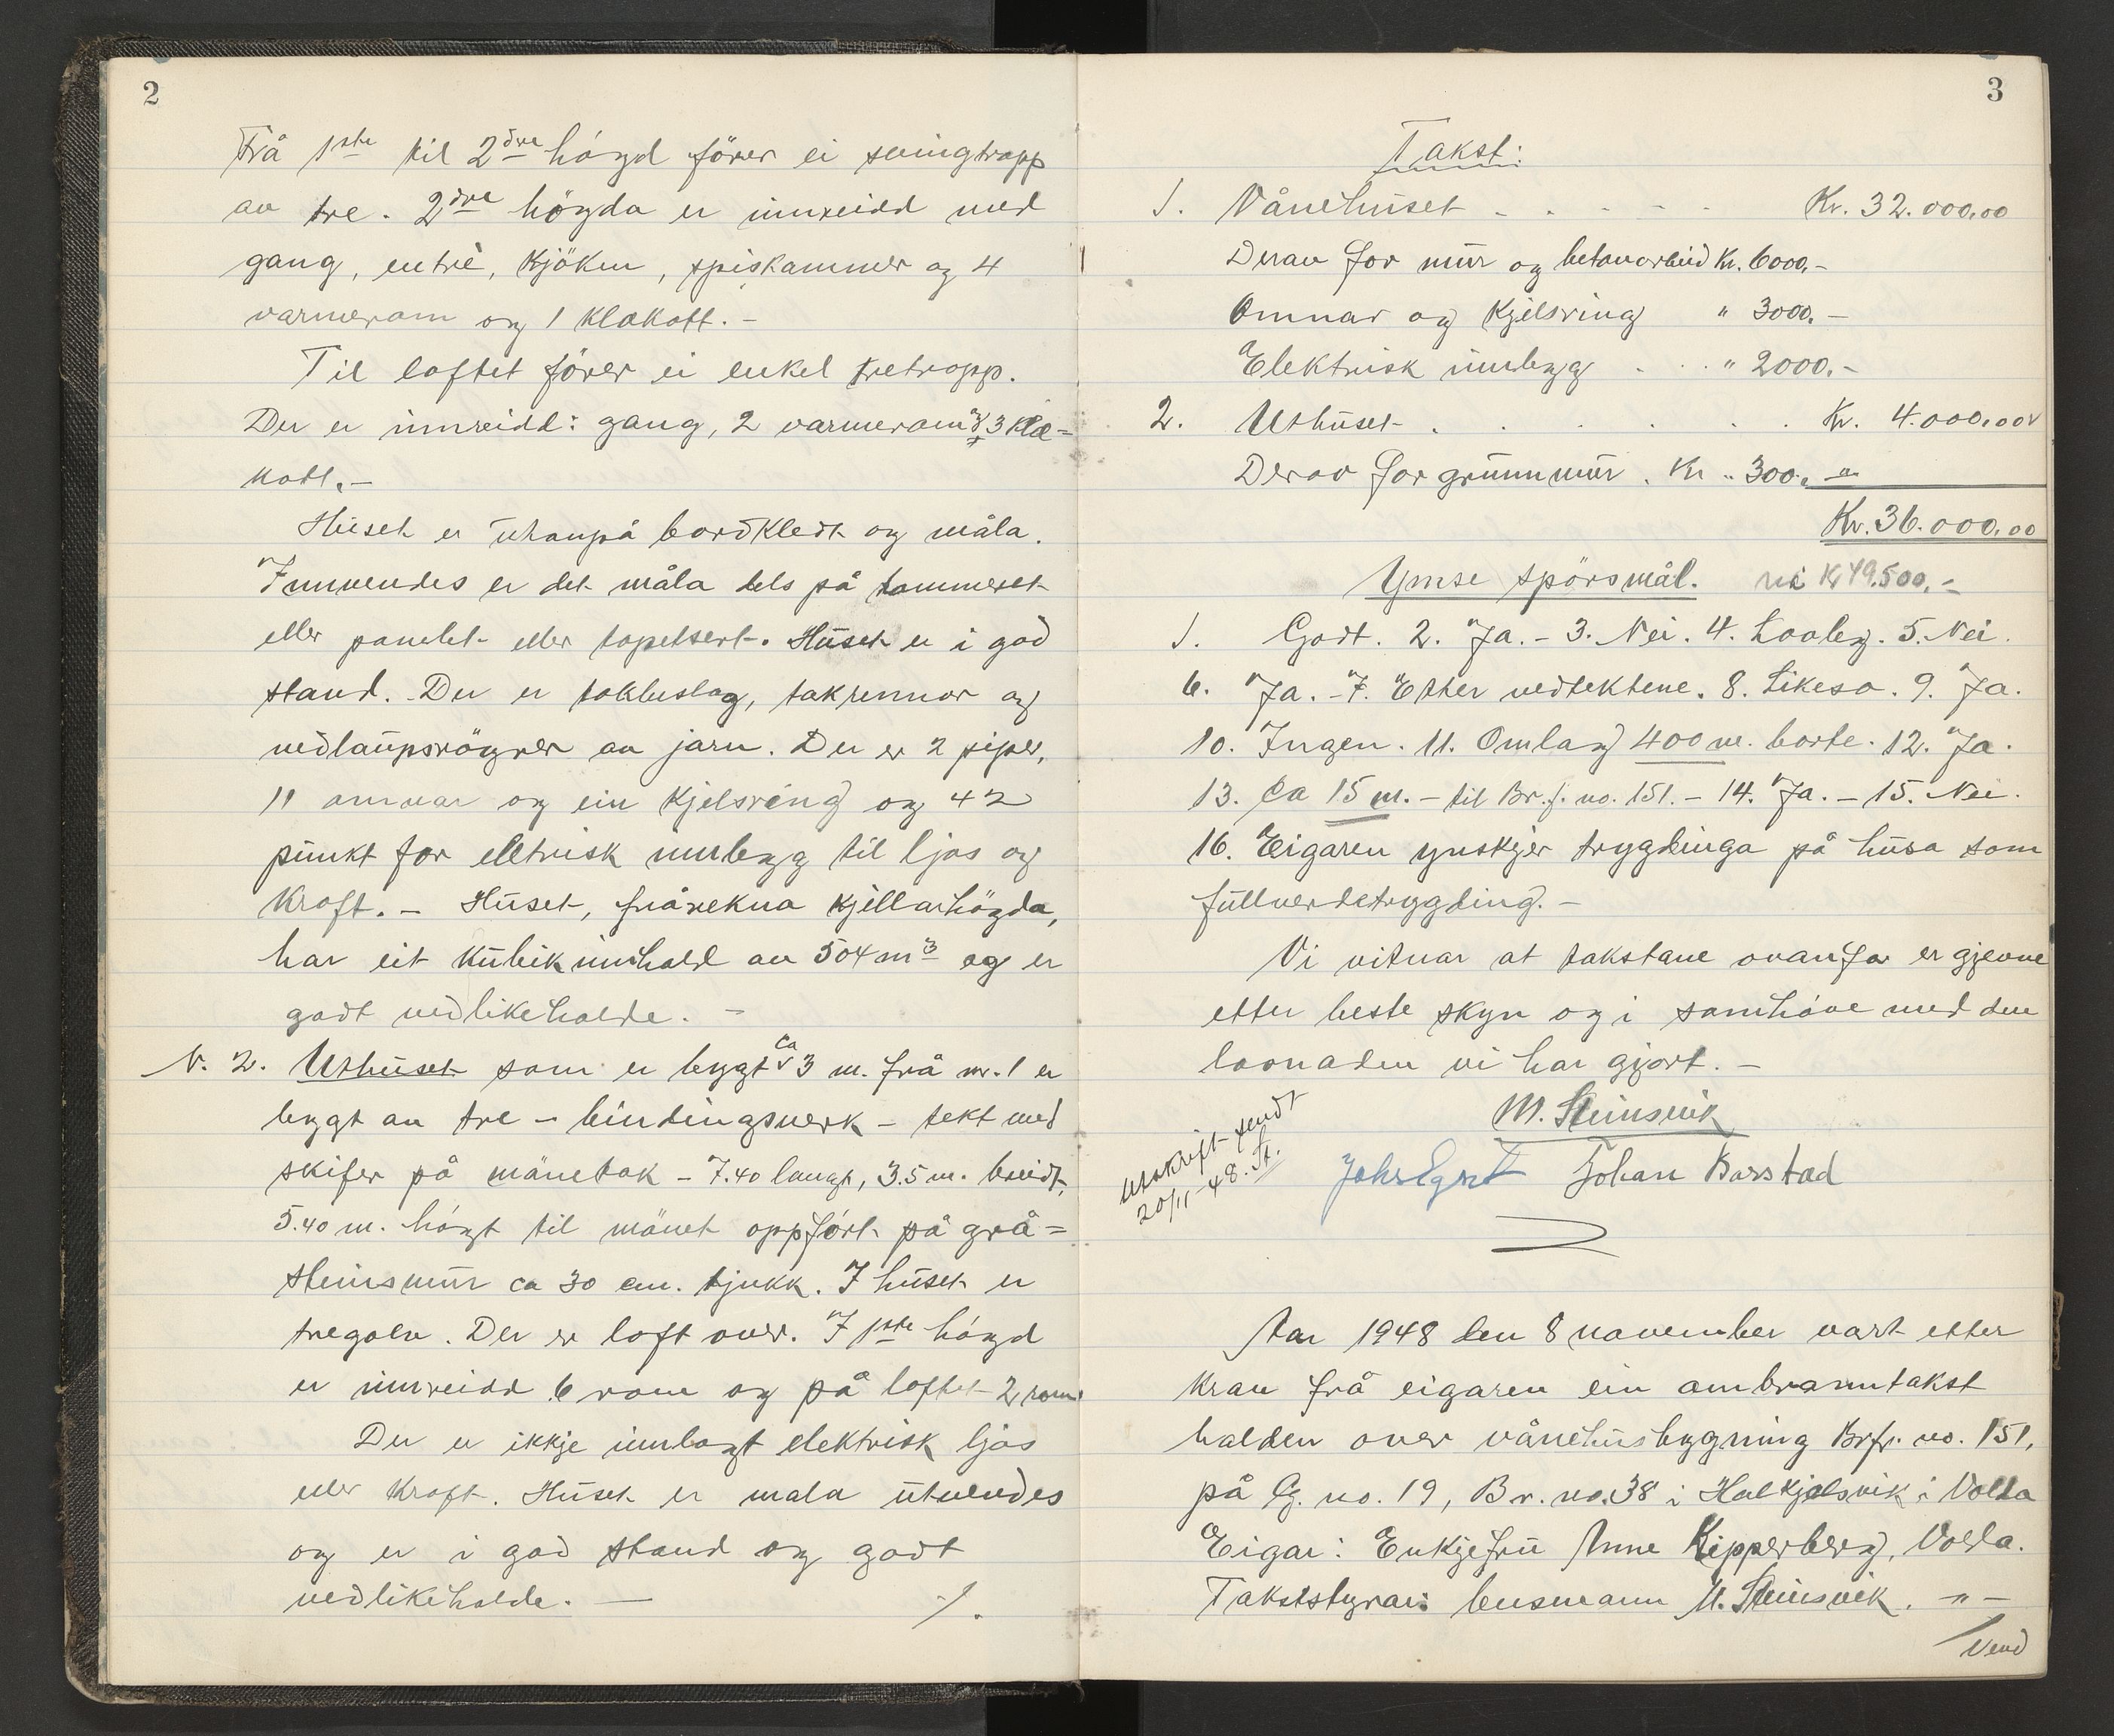 2
Frå 1ste til 2dre högd förer ei svingtropp
av tre. 2dre högda er innreidd med
gang, entrè, kjöken, spiskammer og 4
varmerom og 1 klakott. -
Til loftet förer ei enkel tretropp.
Der er innreidd: gang, 2 varmerom og 3 kla=
kott. -
Huset er utanpå bordkledt og måla.
Innvendes er det måla dels på tommeret
eller panelet eller tapetsert. Huset er i god
stand. Der er takbeslag, takrennor og
nedlaupsrögrer av jarn. Der er 2 piper,
11 omnar og ein kjelsring og 42
punkt for elletrisk innlegg til ljos og
kraft. - Huset, frårekna kjellarhögda,
har eit kubikinnhald av 504 m3 og er
godt vedlikeholde. -
N. 2. Uthuset som er bygt ca 3 m. frå nr. 1 er
bygt av tre - bindingsverk - tekt med
skifer på mönetak - 7.40 langt, 3.5 m. breidt,
5.40 m. högt til mönet oppfört på grå=
steinsmur ca 30 cm. tjukk. I huset er
tregolv. Der er loft over. I 1ste högd
er innreidd 6 rom og på loftet 2 rom
Der er ikkje innlagt elektrisk ljos
eller kraft. Huset er mala utvendes
og er i god stand og godt
vedlikeholde. - ./.
3
Takst:
1. Vånehuset - - - - - Kr. 32.000,00
Derav for mur og betonarbeid Kr. 6000,-
Omnar og kjelsring " 3000,-
Elektrisk innlegg - . . " 2000,-
2. Uthuset . . . . . Kr. 4.000,00
Derav for grunnmur . Kr .. 300,-
Kr. 36.000,00
Ymse spörsmål. nå Kr 49.500,-
1. Godt. 2. Ja. - 3. Nei. 4. Lovleg. 5. Nei.
6. Ja. - 7. Etter vedtektene. 8. Likeso. 9. Ja.
10. Ingen. 11. Omlag 400 m. borte. 12. Ja.
13. Ca 15 m. - til Br.f. no. 151. - 14. Ja. - 15. Nei.
16. Eigaren ynskjer trygdinga på husa som
fullverdetrygding. -
Vi vitnar at takstane ovanfor er gjevne
etter beste skyn og i samhöve med den
lovnaden vi har gjort. -
M. Steinsvik
Johan Barstad
Utskrift sendt
20/11-48. St.
Aar 1948 den 8 november vart etter
krav frå eigaren ein ombranntakst
halden over vånehusbygning Brfr. no. 151,
på G. no. 19, Br. no. 38 i Halkjelsvik i Volda
Eigar: Enkjefru Anne Kipperberg, Volda.
Takststyrar: lensmann M. Steinsvik. - " -
/Vend